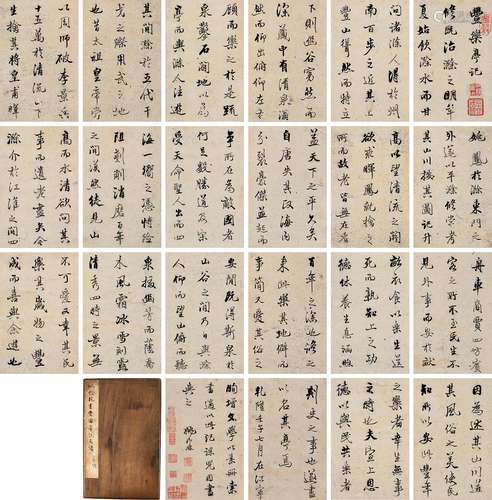 豐樂亭記
修既治滁之明年
夏始飲滁水而甘
問諸滁人得於州
南百步之近其上
豐山聳然而特立
下則幽谷窈然而
深藏中有清泉滃
然而仰出俯仰左右
顧而樂之於是疏
泉鑿石闢地以為
亭而與滁人往遊
其間滁於五代干
戈之際用武之地
也昔太祖皇帝嘗
以周師破李景兵
十五萬於清流山下
生擒其將皇甫暉
姚鳳於滁東門之
外遂以平滁修嘗考
其山川按其圖記升
高以望清流之關
欲求暉鳳就擒之所
而故老皆無在者
蓋天下之平久矣
自唐失其政海內
分裂豪傑並起而
爭所在為敵國者
何可勝數及宋
受天命聖人出而四
海一嚮之憑恃險
阻剗削消磨百年
之間漠然徒見山
高而水清欲問其
事而遺老盡矣今
滁介於江淮之間
舟車商賈四方賓
客之所不至民生不
見外事而安於畎
畝衣食以樂生送
死而孰知上之功
德休養生息涵煦
百年之深也修之
來此樂其地僻而
事簡又愛其俗之
安閑既得斯泉於
山谷之間乃日與滁
人仰而望山俯而聽
泉掇幽芳而蔭喬
木風霜冰雪刻露
清秀四時之景無
不可愛又幸其民
樂其歲物之豐
成而喜與余遊也
因為本其山川道
其風俗之美使民
知所以安此豐年
之樂者幸生無事
之時也夫宣上恩
德以與民共樂
刺史之事也遂書
以名其亭焉
乾隆壬子七月在江寧
學以素冊索
書適以課兒因書
與之